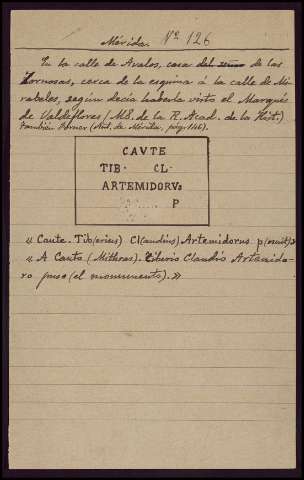 Mérida. Nº 126
En la calle de Avalos, casa del señor de las
Tornosas, cerca de la esquina á la calle de Mi-
rabeles, según decía haberla visto el Marqués
de Valdeflores (MS. de la R. Acad. de la Hist.)
También Forner (Ant. de Mérida, pág. 146).
CAVTE
TIB· CL·
ARTEMIDORVS
P
« Caute. Tib(erius) Cl(audius) Artemidorus p(osuit)»
« A Cauto (Mithras). Tiberio Claudio Artemido-
ro puso (el monumento). »